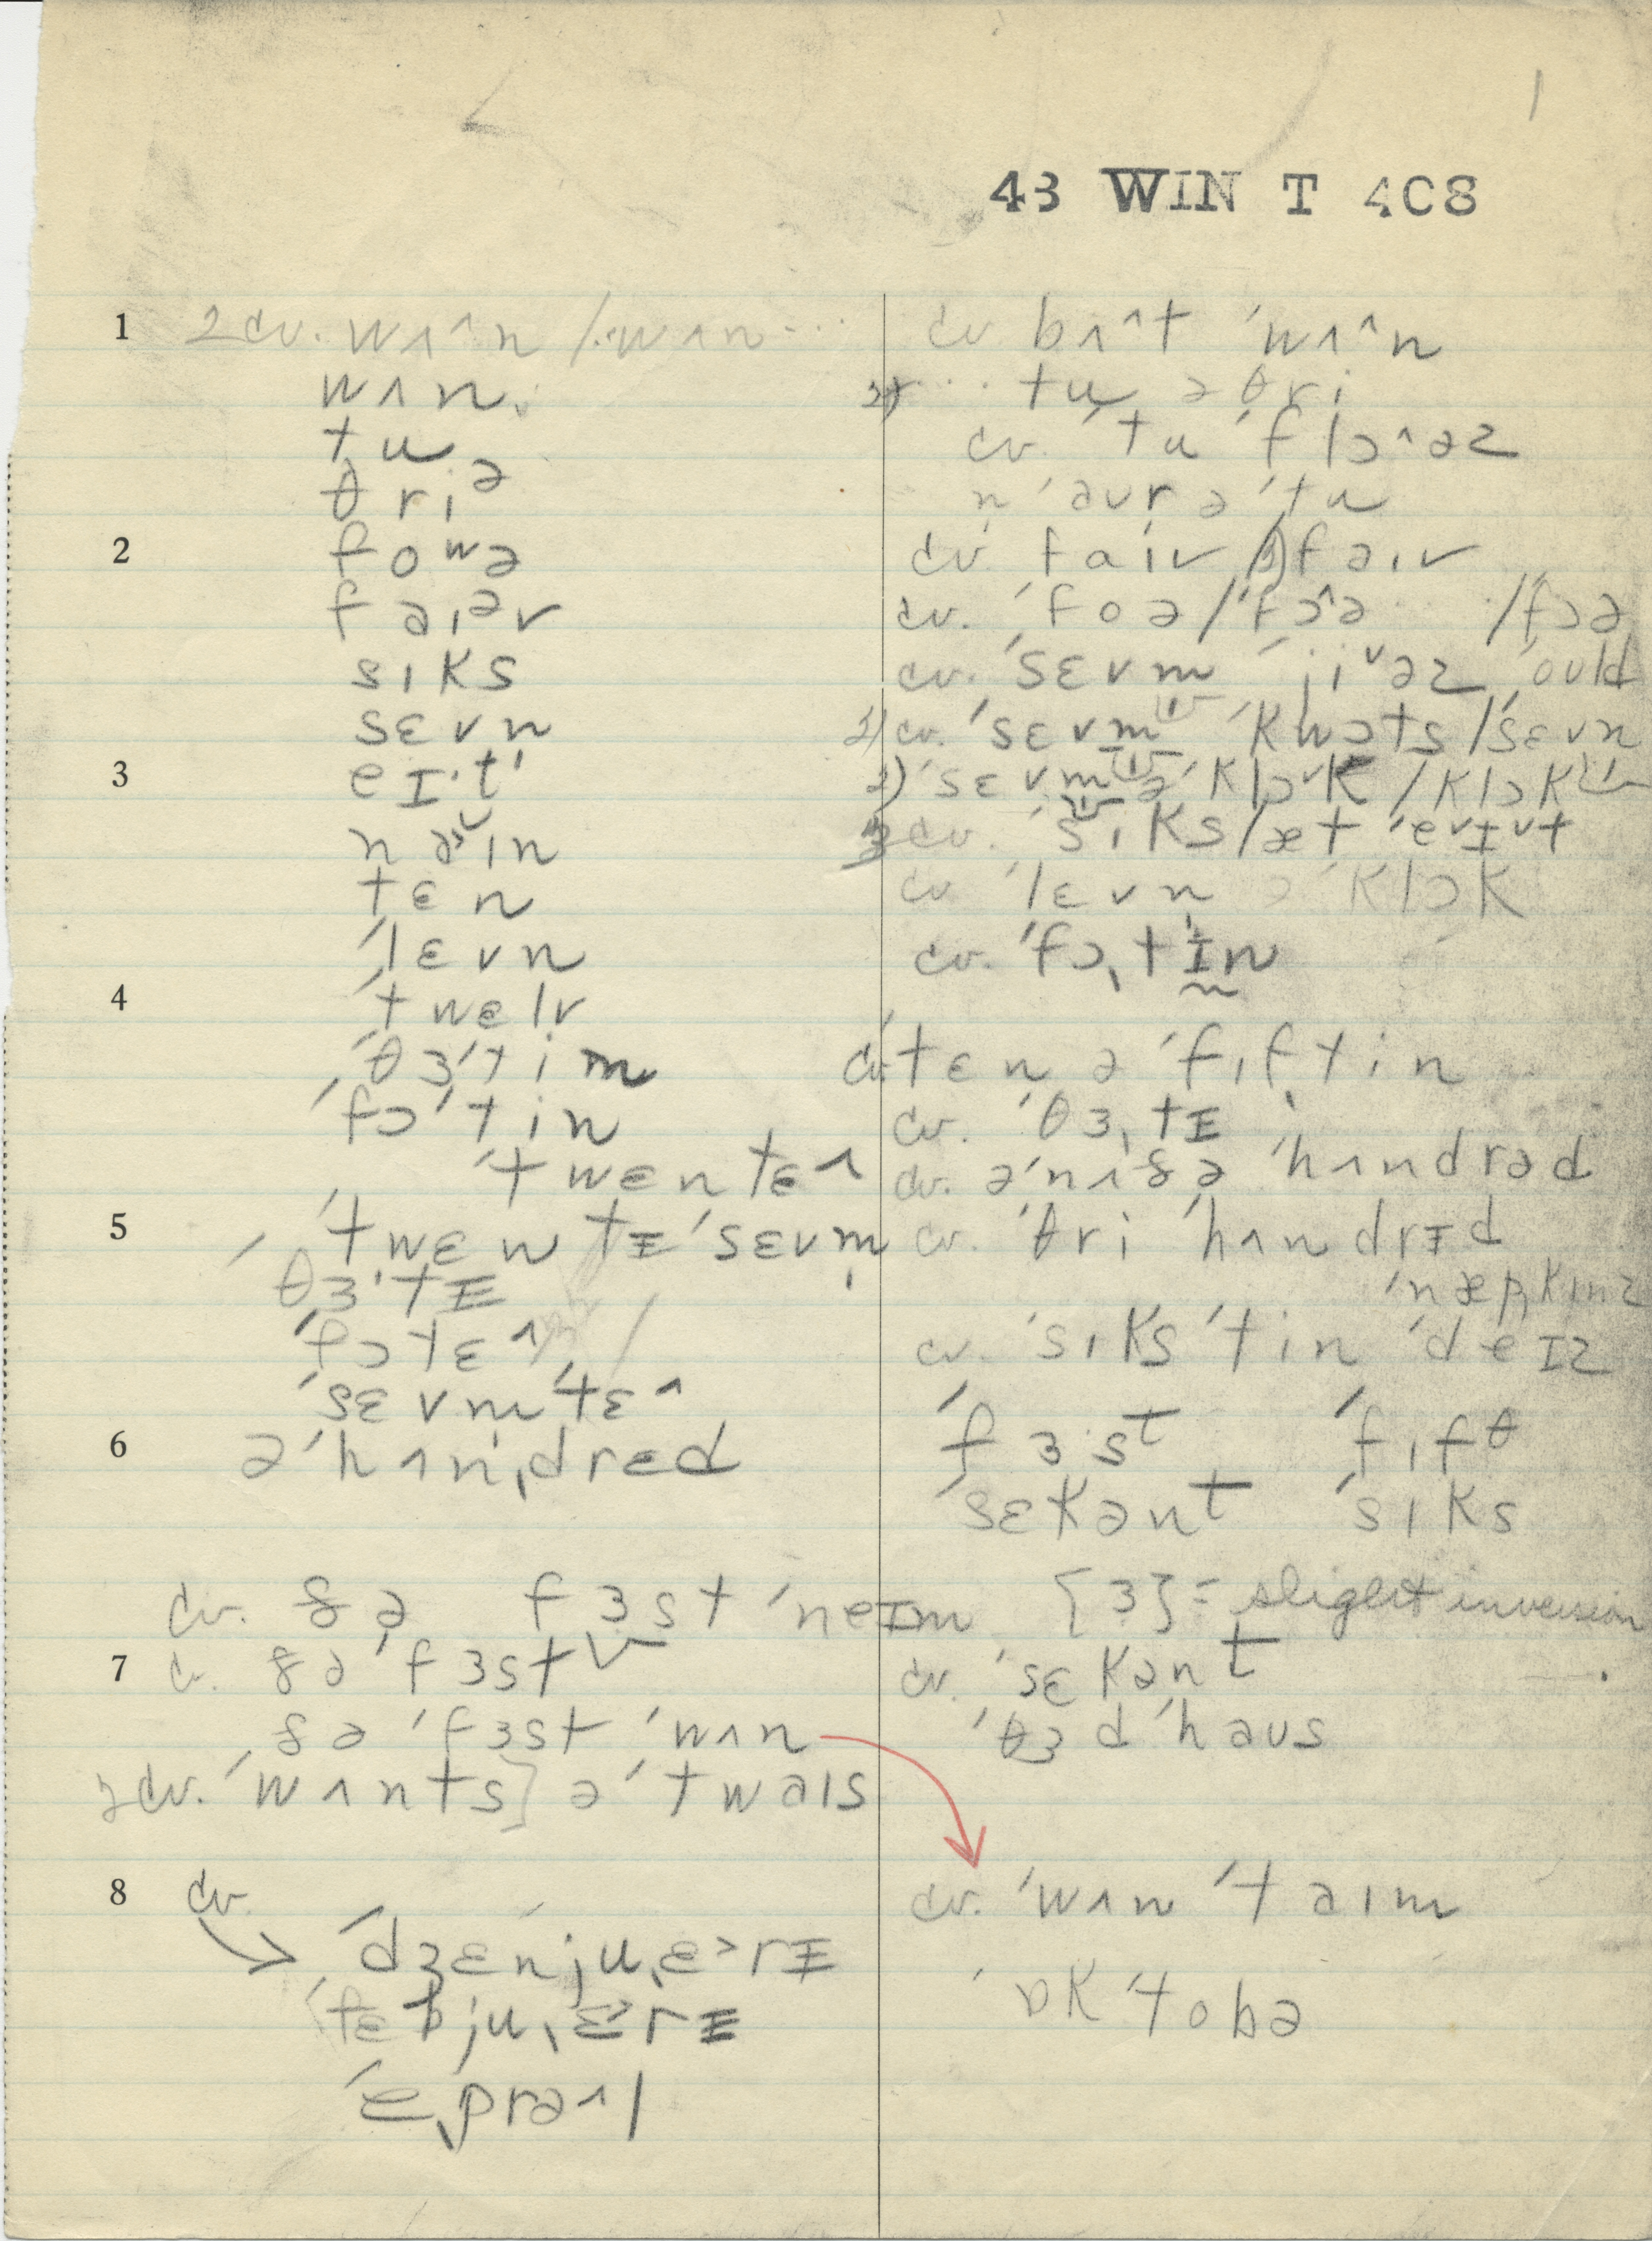 1
43 WIN T 4C8
1 2 cv. wʌ^n / wʌn ...
wʌn
tu
θriə
2 fowə
faiəv
sɪks
sɛvn
3 eɪt'
nəin
tɛn
'lɛvn
4 'twelv
'θɜ'tim
'fɔ'tin
'twɛntɛ^
5 'twɛntɪ'sɛvm
'θɜ'tɪ
'fɔtɛ^
'sɛvm'tɛ^
6 ə'hʌn,drɛd
cv. ðə fɜst 'neɪm
7 cv. ðə'fɜst
ðə 'fɜst 'wʌn
2 cv. 'wʌnts] ə 'twaɪs
8 cv.
'dʒɛnju,ɛ>rɪ
'fɛbju,ɛ>rɪ
'e,prə^l
cv bʌ^t 'wʌ^n
2) ... tu ə θri
cv. 'tu 'flɔ^əz
n 'auvr ə 'tu
cv. faiv / 2) faɪv
cv. 'foə / 'fɔ^ə / fɔə
cv. 'sɛvm 'jiᵛəz 'ould
2) cv. 'sɛvm 'kwɔts / 'sɛvn
2) 'sɛvm ə'klɔᵛk / klɔk
cv. 'sɪks / æt 'eᵛɪᵛt
cv 'lɛvn ə'klɔk
cv. 'fɔ,tɪn
cv. tɛn ə 'fɪf,tin
cv. 'θɜ,tɪ
cv. ə'nʌðə 'hʌndrəd
cv. 'θri 'hʌndrɪd
'næp,kɪnz
cv. 'sɪks'tin 'deɪz
'fɜst 'fɪfθ
'sɛkənt 'sɪks
[ɜ] = slight inversion
cv. 'sɛkənt
'θɜd 'haus
cv. 'wʌn 'taɪm
'ɒk'tobə